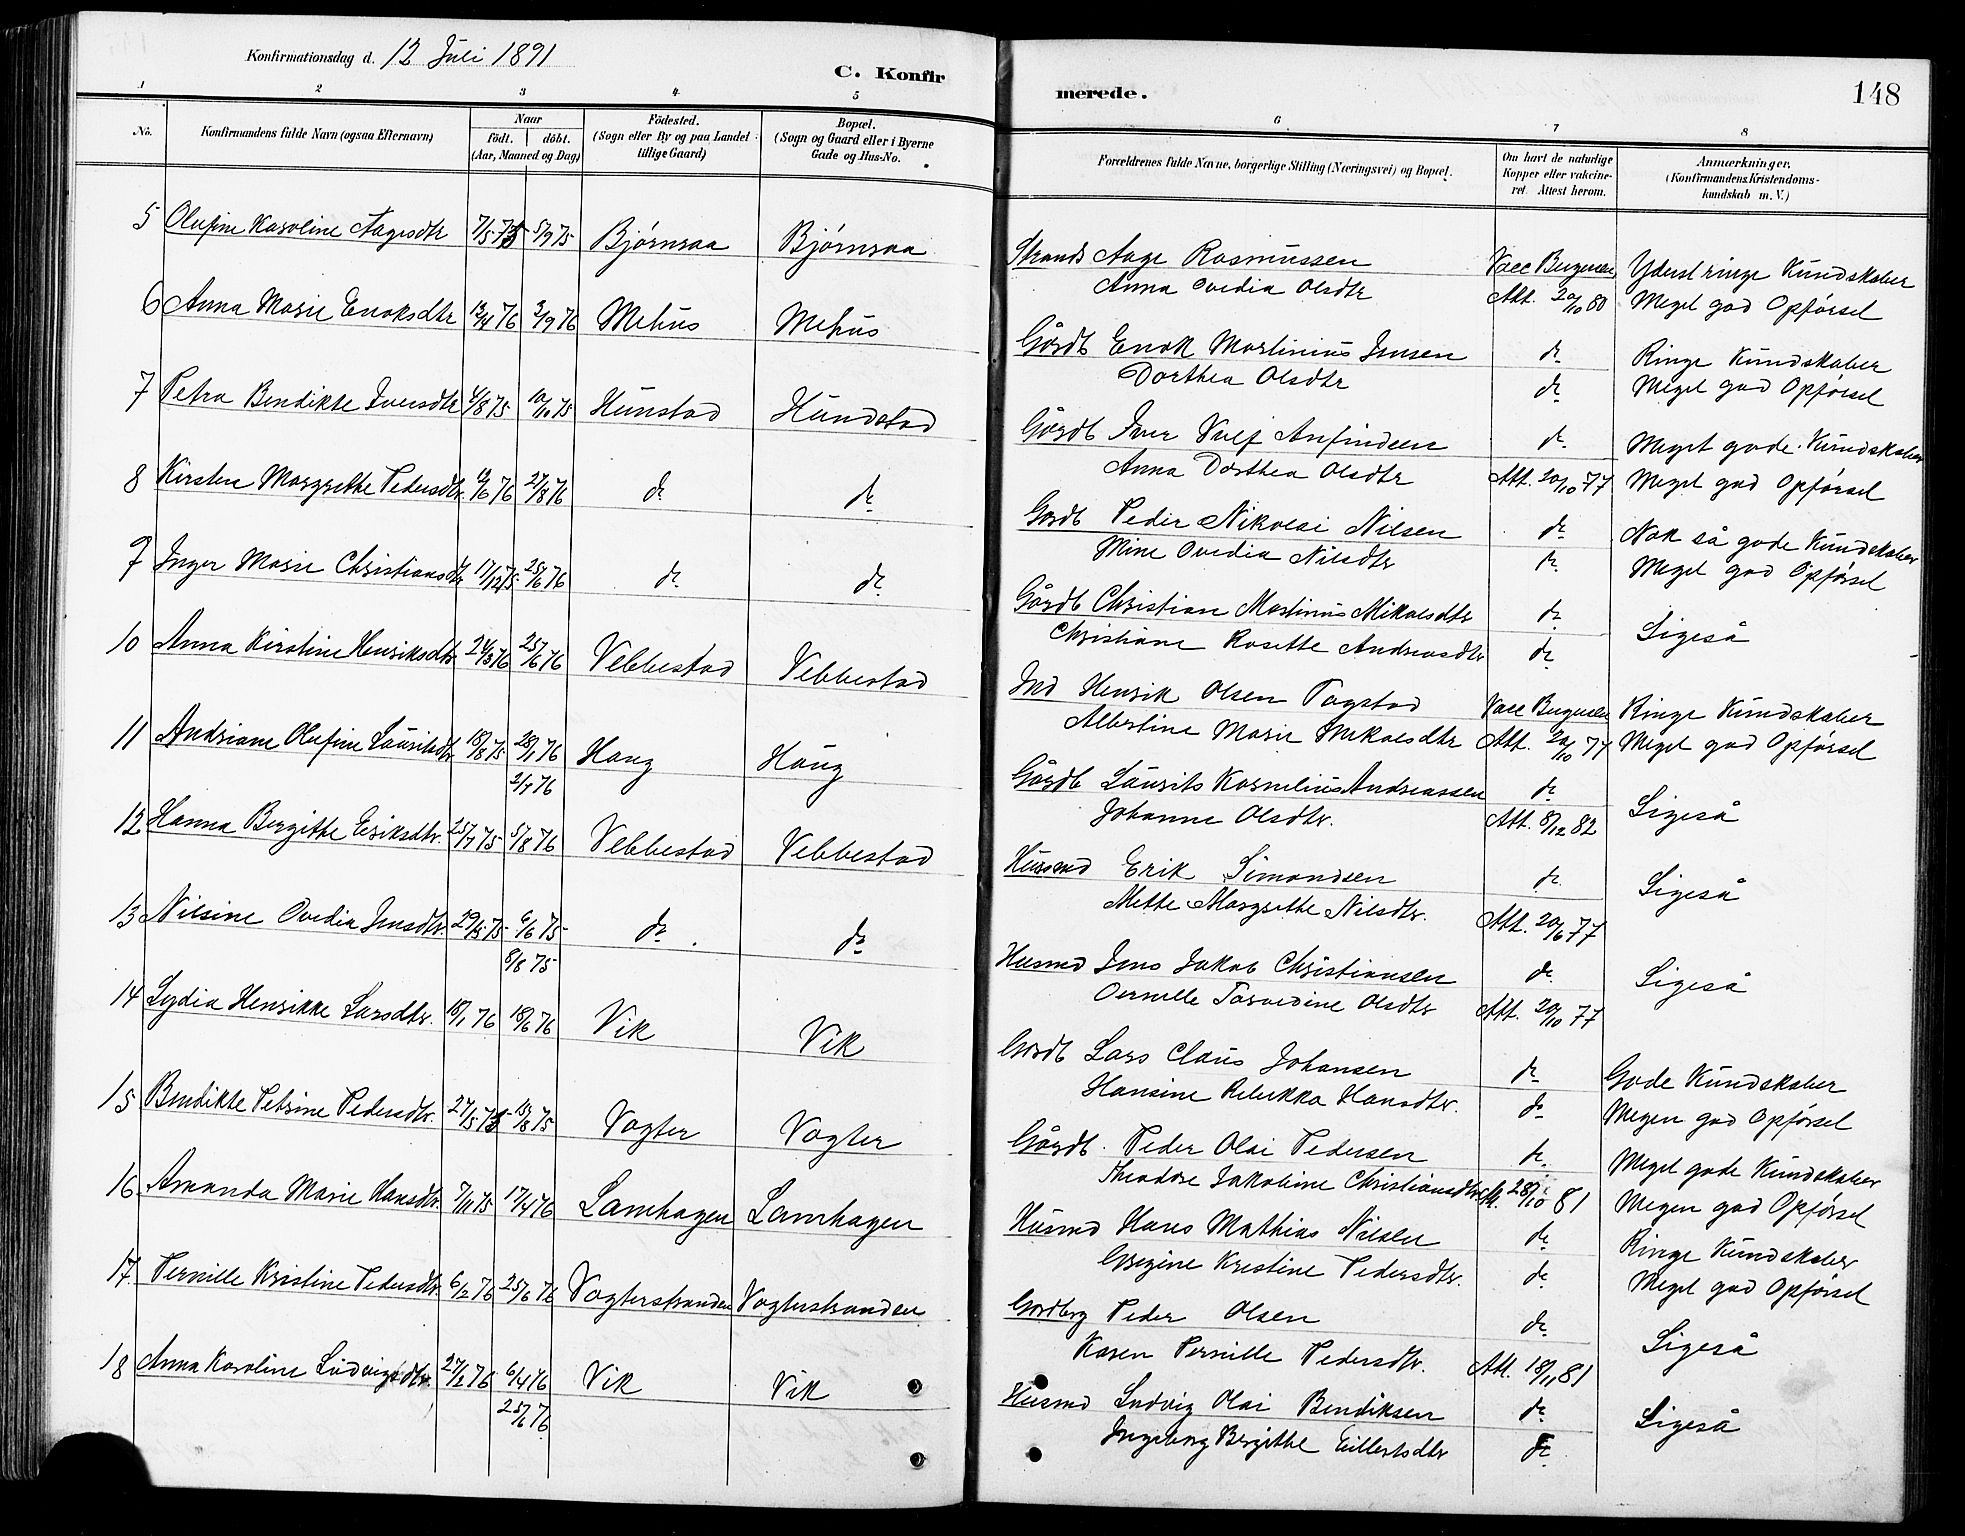 Konfirmationsdag d. 12 Juli 1891
C. Konfir
1 2 3 4 5
No.
Konfirmandens fulde Navn (ogsaa Efternavn)
Naar
födt. döbt.
(Aar, Maaned og Dag)
Födested.
(Sogn eller By og paa Landet
tillige Gaard)
Bopæl.
(Sogn og Gaard eller i Byerne
Gade og Hus-No.
5 Olufine Karoline Aagesdtr 7/5 75 5/9 75 Bjørnraa Bjørnraa
6 Anna Marie Enoksdtr 12/4 76 3/9 76 Mehus Mehus
7 Petra Bendikte Iversdtr 4/8 75 10/10 75 Hunstad Hundstad
8 Kirsten Margrethe Pedersdtr 19/6 76 27/8 76 do do
9 Inger Marie Christiansdtr 17/12 75 25/6 76 do do
10 Anna Kirstine Henriksdtr 24/3 76 25/6 76 Vebbestad Vebbestad
11 Andriane Olufine Lauritsdtr 18/8 75 28/1 76 Haug Haug
2/4 76
12 Hanna Bergithe Eriksdtr. 25/7 75 5/8 76 Vebbestad Vebbestad
13 Nilsine Ovedia Jensdtr. 29/5 75 6/6 75 do do
8/8 75
14 Lydia Henrikke Larsdtr. 18/1 76 18/6 76 Vik Vik
15 Bendikte Petrine Pedersdtr. 27/5 75 15/8 75 Vogter Vogter
16 Amanda Marie Hansdtr. 7/11 75 17/4 76 Lamhagen Lamhagen
17. Pernille Kristine Pedersdtr. 6/2 76 25/6 76 Vogterstranden Vogterstranden
18 Anna Karoline Ludvigsdtr. 27/2 76 6/4 76 Vik Vik
25/6 76
148
merede.
6 7 8
Forældrenes fulde Navne, borgerlige Stilling (Næringsvei) og Bopæl.
Om havt de naturlige
Kopper eller vakcine-
ret. Attest herom.
Anmærkninger,
(Konfirmandens Kristendoms-
kundskab m. V.)
Strands Aage Rasmussen Vacc Bergersen Yderst ringe Kundskaber
Anna Ovedia Olsdtr Att. 20/10 80 Meget god Opførsel
Gårdb Enok Martinius Jensen do Ringe Kundskaber
Dorthea Olsdtr do Meget god Opførsel
Gårdb Iver Ulf Anfindsen do Meget gode Kundskaber
Anna Dorthea Olsdtr Att. 20/10 77 Meget god Opførsel
Gårdb Peder Nikolai Nilsen do Nok så gode Kundskaber
Mine Ovedia Nilsdtr do Meget god Opførsel
Gårdb Christian Martinus Mikaelsdtr do Ligeså
Christiane Rosette Andreasdtr do
Ind Henrik Olsen Fagstad Vacc Bergersen Ringe Kundskaber
Albertine Marie Mikaelsdtr Att. 20/10 77 Meget god Opførsel
Gårdb Laurits Kornelius Andreassen do Ligeså
Johanne Olsdtr. Att. 8/12 82
Husmd Erik Simondsen do Ligeså
Mette Margrethe Nilsdtr. Att. 20/6 77
Husmd Jens Jakob Christiansen do Ligeså
Olsdtr Att. 20/10 77
Gårdb Lars Claus Johansen do Gode Kundskaber
Hansine Rebekka Hansdtr. do Megen god Opførsel
Gårdb. Peder Olai Pedersen do Meget gode Kundskaber
Theodore Jakobine Christiansdtr Att. 28/10 81 Megen god Opførsel
Husmd Hans Mathias Nilsen do Ringe Kundskaber
Gregine Kristine Pedersdtr. do Meget god Opførsel
Gårdbrg Peder Olsen do Ligeså
Karen Pernille Pedersdtr. Att. 18/11 81
Husmd Ludvig Olai Bendiksen do Ligeså
Ingeborg Bergithe Eillertsdtr do